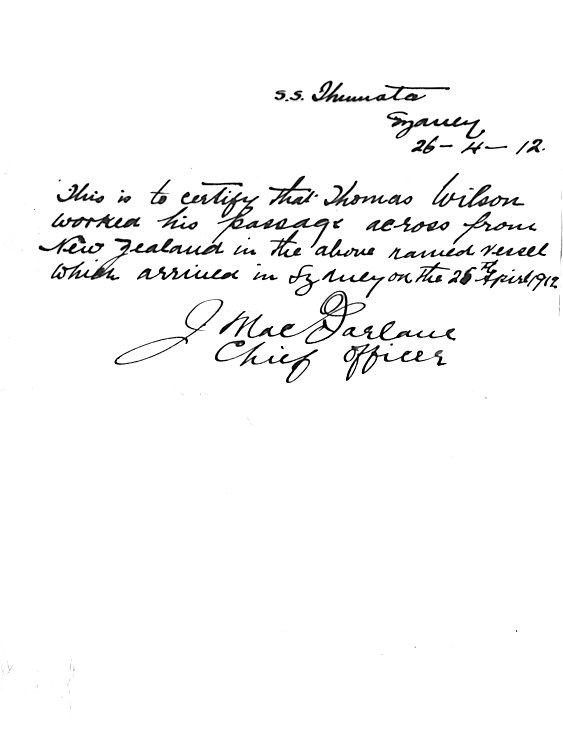 S.S.
Sydney
26 - 4 - 12.
This is to certify that Thomas Wilson
worked his passage across from
New Zealand in the above named vessel
which arrived in Sydney on the 26th April 1912
J MacFarlane
Chief Officer